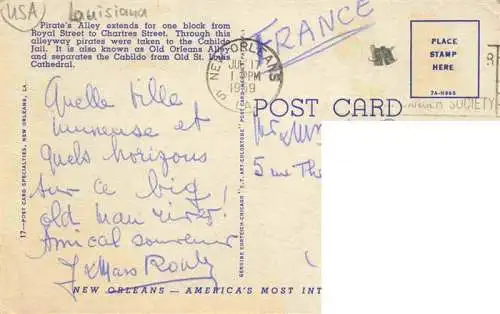 (USA) Louisiana
Pirate's Alley extends for one block from
Royal Street to Chartres Street. Through this
alleyway pirates were taken to the Cabildo
Jail. It is also known as Old Orleans Alley
and separates the Cabildo from Old St. Louis
Cathedral.
FRANCE
NEW ORLEANS
17
1 PM
1959
PLACE
STAMP
HERE
7A-H965
SOCIETY
POST CARD
Quelle ville
immense et
quels horizons
sur ce big
old man river!
Amical souvenir
5 rue Th
17—POST CARD SPECIALTIES, NEW ORLEANS, LA.
GENUINE CURTEICH-CHICAGO "C.T. ART-COLORTONE" POST CARD
NEW ORLEANS — AMERICA'S MOST INT